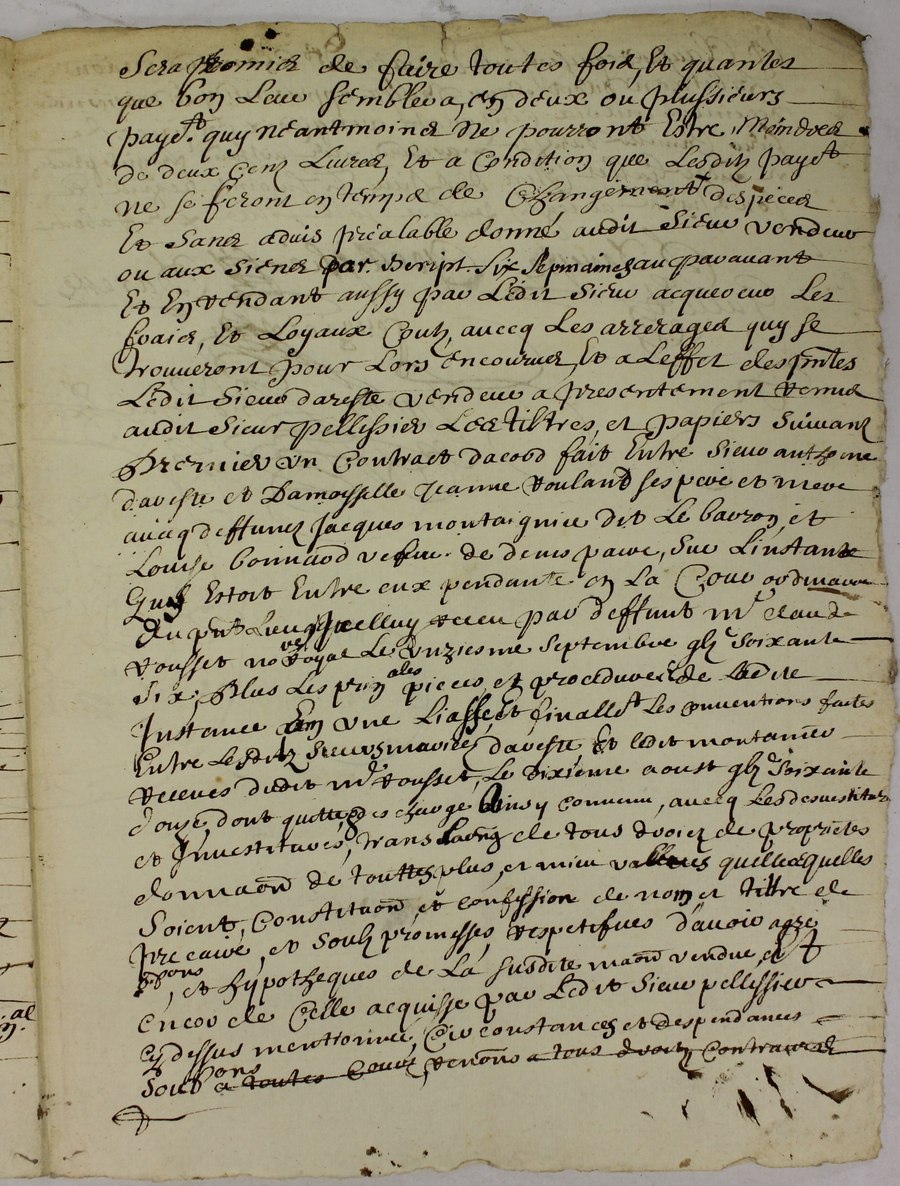 Sera promier de faire toutes fois, Et quantes
que bon Leur semblera, en deux ou plussieurs
payet. quy neantmoins Ne pourront Estre Moindres
de deux Cens Livres, Et a Condition que Lesditz payet
ne se feront en temps de Changement despieces
Et Sans advis prealable donné audit Sieur vendeur
ou aux Siens par. Script. Six Sepmaines auparavant
Et En rendant aussy par Ledit Sieur acquereur Les
fraies, Et Loyaux Coutz, avecq Les arrerages quy se
trouveront pour Lors encourues, Et a Leffet des pntes
Ledit Sieur dareste vendeur a presentement remis
audit Sieur pellissier Les tiltres, et papiers Suivans
Premier un Contract dacord fait Entre Sieur anthoine
dareste et Damoiselle Jeanne Rouland ses pere et mere
avecq deffunctz Jacques montaignier dit Le baron, et
Louise bonnard vefve de denis parre, Sur Linstante
Quy Estoit Entre eux pendante en La Cour ordinaire
du pnt Lieu, Icelluy receu par deffunt mr claude
Rousset no royal Le unziesme Septembre gbjc Soixante
Six, Plus Les prinales pieces, et procedures de Ladite
Instance En une Liasse, Et finallet Les conventions faites
Entre Lesditz Sieurs mariez dareste Et ledit montanier
receues dudit mr Rousset, Le dixieme aoust gbjc Soixante
douze, dont quitte des charge Ainsy convenu, avecq Les desvestitures
et Investitures, translaons de tous droicz de proprietes
donnaon de touttes plus, et mieu vallues quelles quelles
Soient, Constituaon et confession de nom et tiltre de
precaire, et Soubz promesses, respetifves d'avoir agre
et hypotheques de La susdite maon vendue, et
encor de Celle acquisse par Ledit Sieur pellissier
cy dessus mentionnée, Circonstances et despendances
Soub a toutes Courtz, renons a tous droitz Contraires